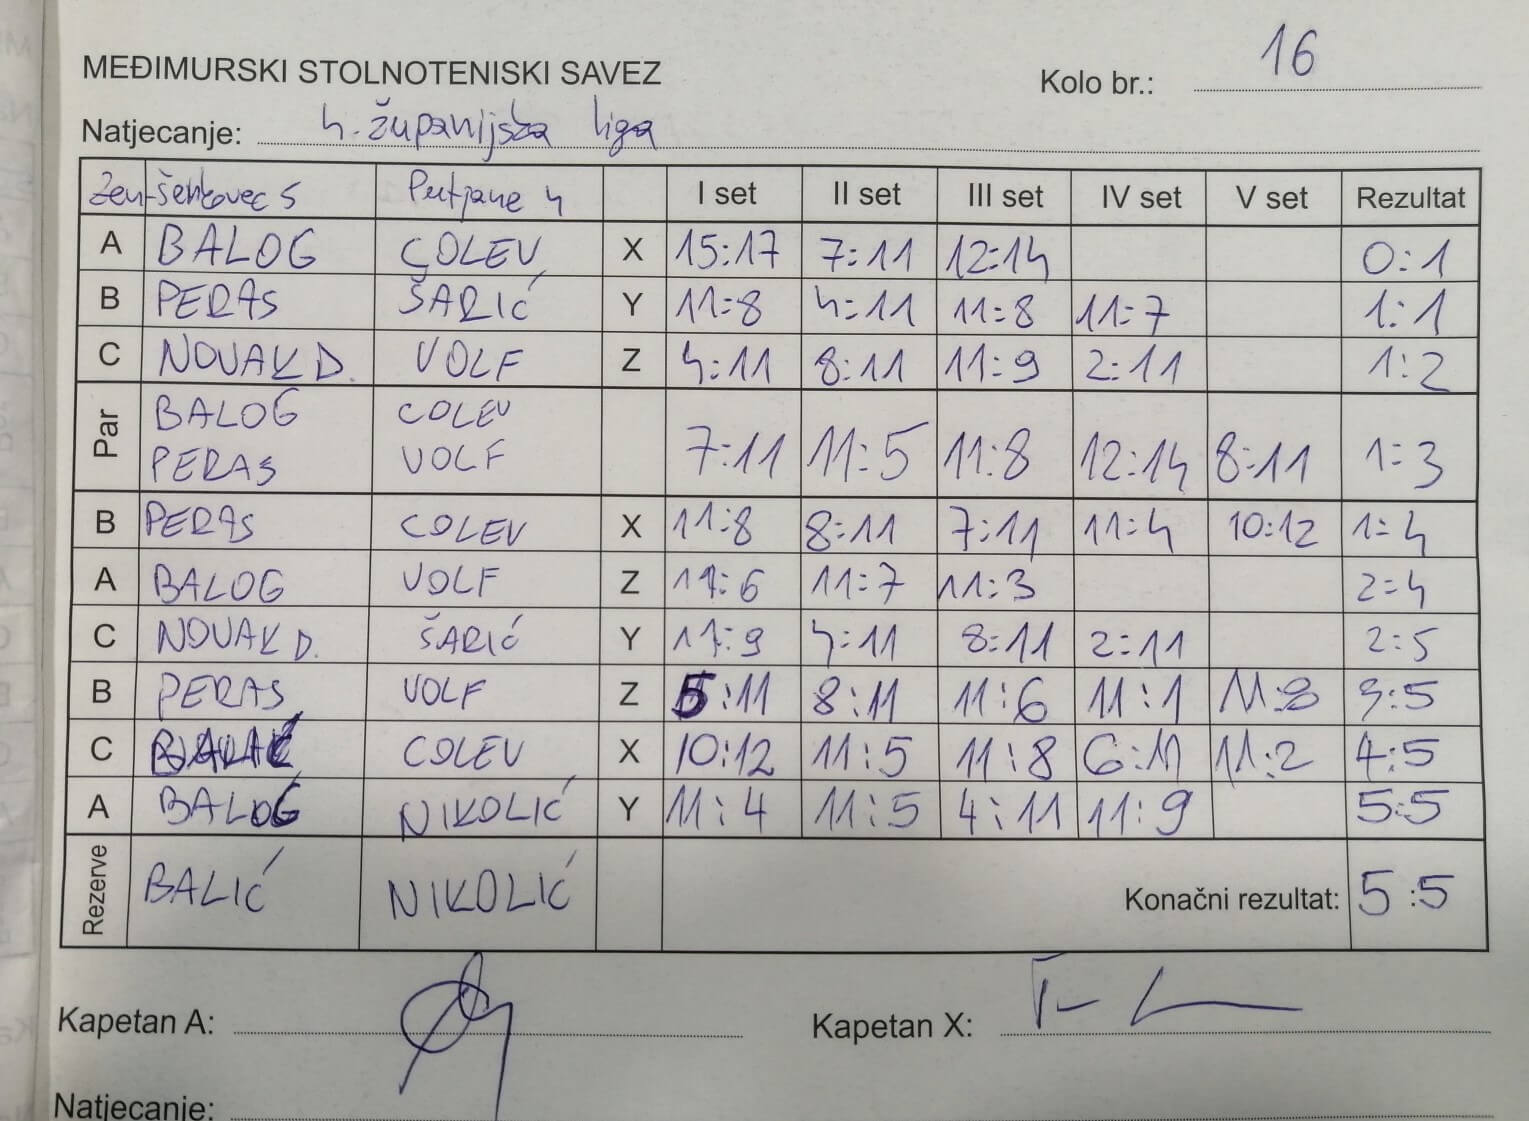 MEĐIMURSKI STOLNOTENISKI SAVEZ
Kolo br.: 16
Natjecanje: 4. županijska liga
Zeu-Šenkovec 5 Putjane 4 I set II set III set IV set V set Rezultat
A BALOG COLEV X 15:17 7:11 12:14 0:1
B PERAS ŠARIĆ Y 11:8 4:11 11:8 11:7 1:1
C NOVAK D. VOLF Z 4:11 8:11 11:9 2:11 1:2
Par
BALOG COLEV
PERAS VOLF 7:11 11:5 11:8 12:14 8:11 1:3
B PERAS COLEV X 11:8 8:11 7:11 11:4 10:12 1:4
A BALOG VOLF Z 11:6 11:7 11:3 2:4
C NOVAK D. ŠARIĆ Y 11:9 4:11 8:11 2:11 2:5
B PERAS VOLF Z 5:11 8:11 11:6 11:1 11:8 3:5
C COLEV X 10:12 11:5 11:8 6:11 11:2 4:5
A BALOG NIKOLIĆ Y 11:4 11:5 4:11 11:9 5:5
Rezerve BALIĆ NIKOLIĆ Konačni rezultat: 5:5
Kapetan A: Kapetan X:
Natjecanje: